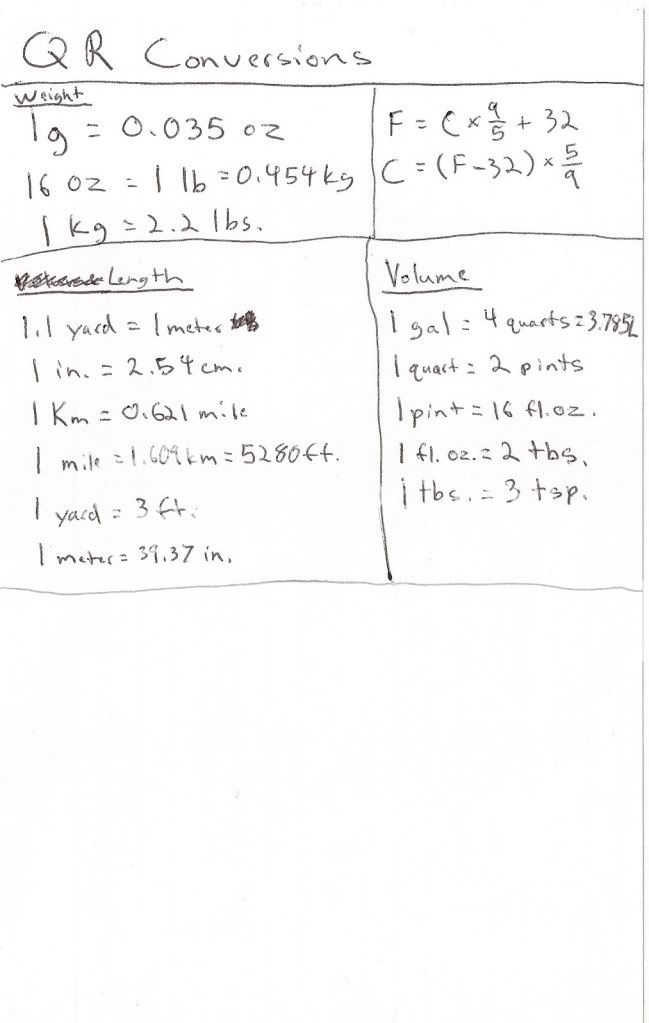 QR Conversions
Weight
1g = 0.035 oz
16 oz = 1 lb = 0.454 kg
1 kg = 2.2 lbs.
F = C × 9/5 + 32
C = (F-32) × 5/9
Length
1.1 yard = 1 meter
1 in. = 2.54 cm.
1 Km = 0.621 mile
1 mile = 1.609 km = 5280 ft.
1 yard = 3 ft.
1 meter = 39.37 in.
Volume
1 gal = 4 quarts = 3.785L
1 quart = 2 pints
1 pint = 16 fl.oz.
1 fl. oz. = 2 tbs.
1 tbs. = 3 tsp.